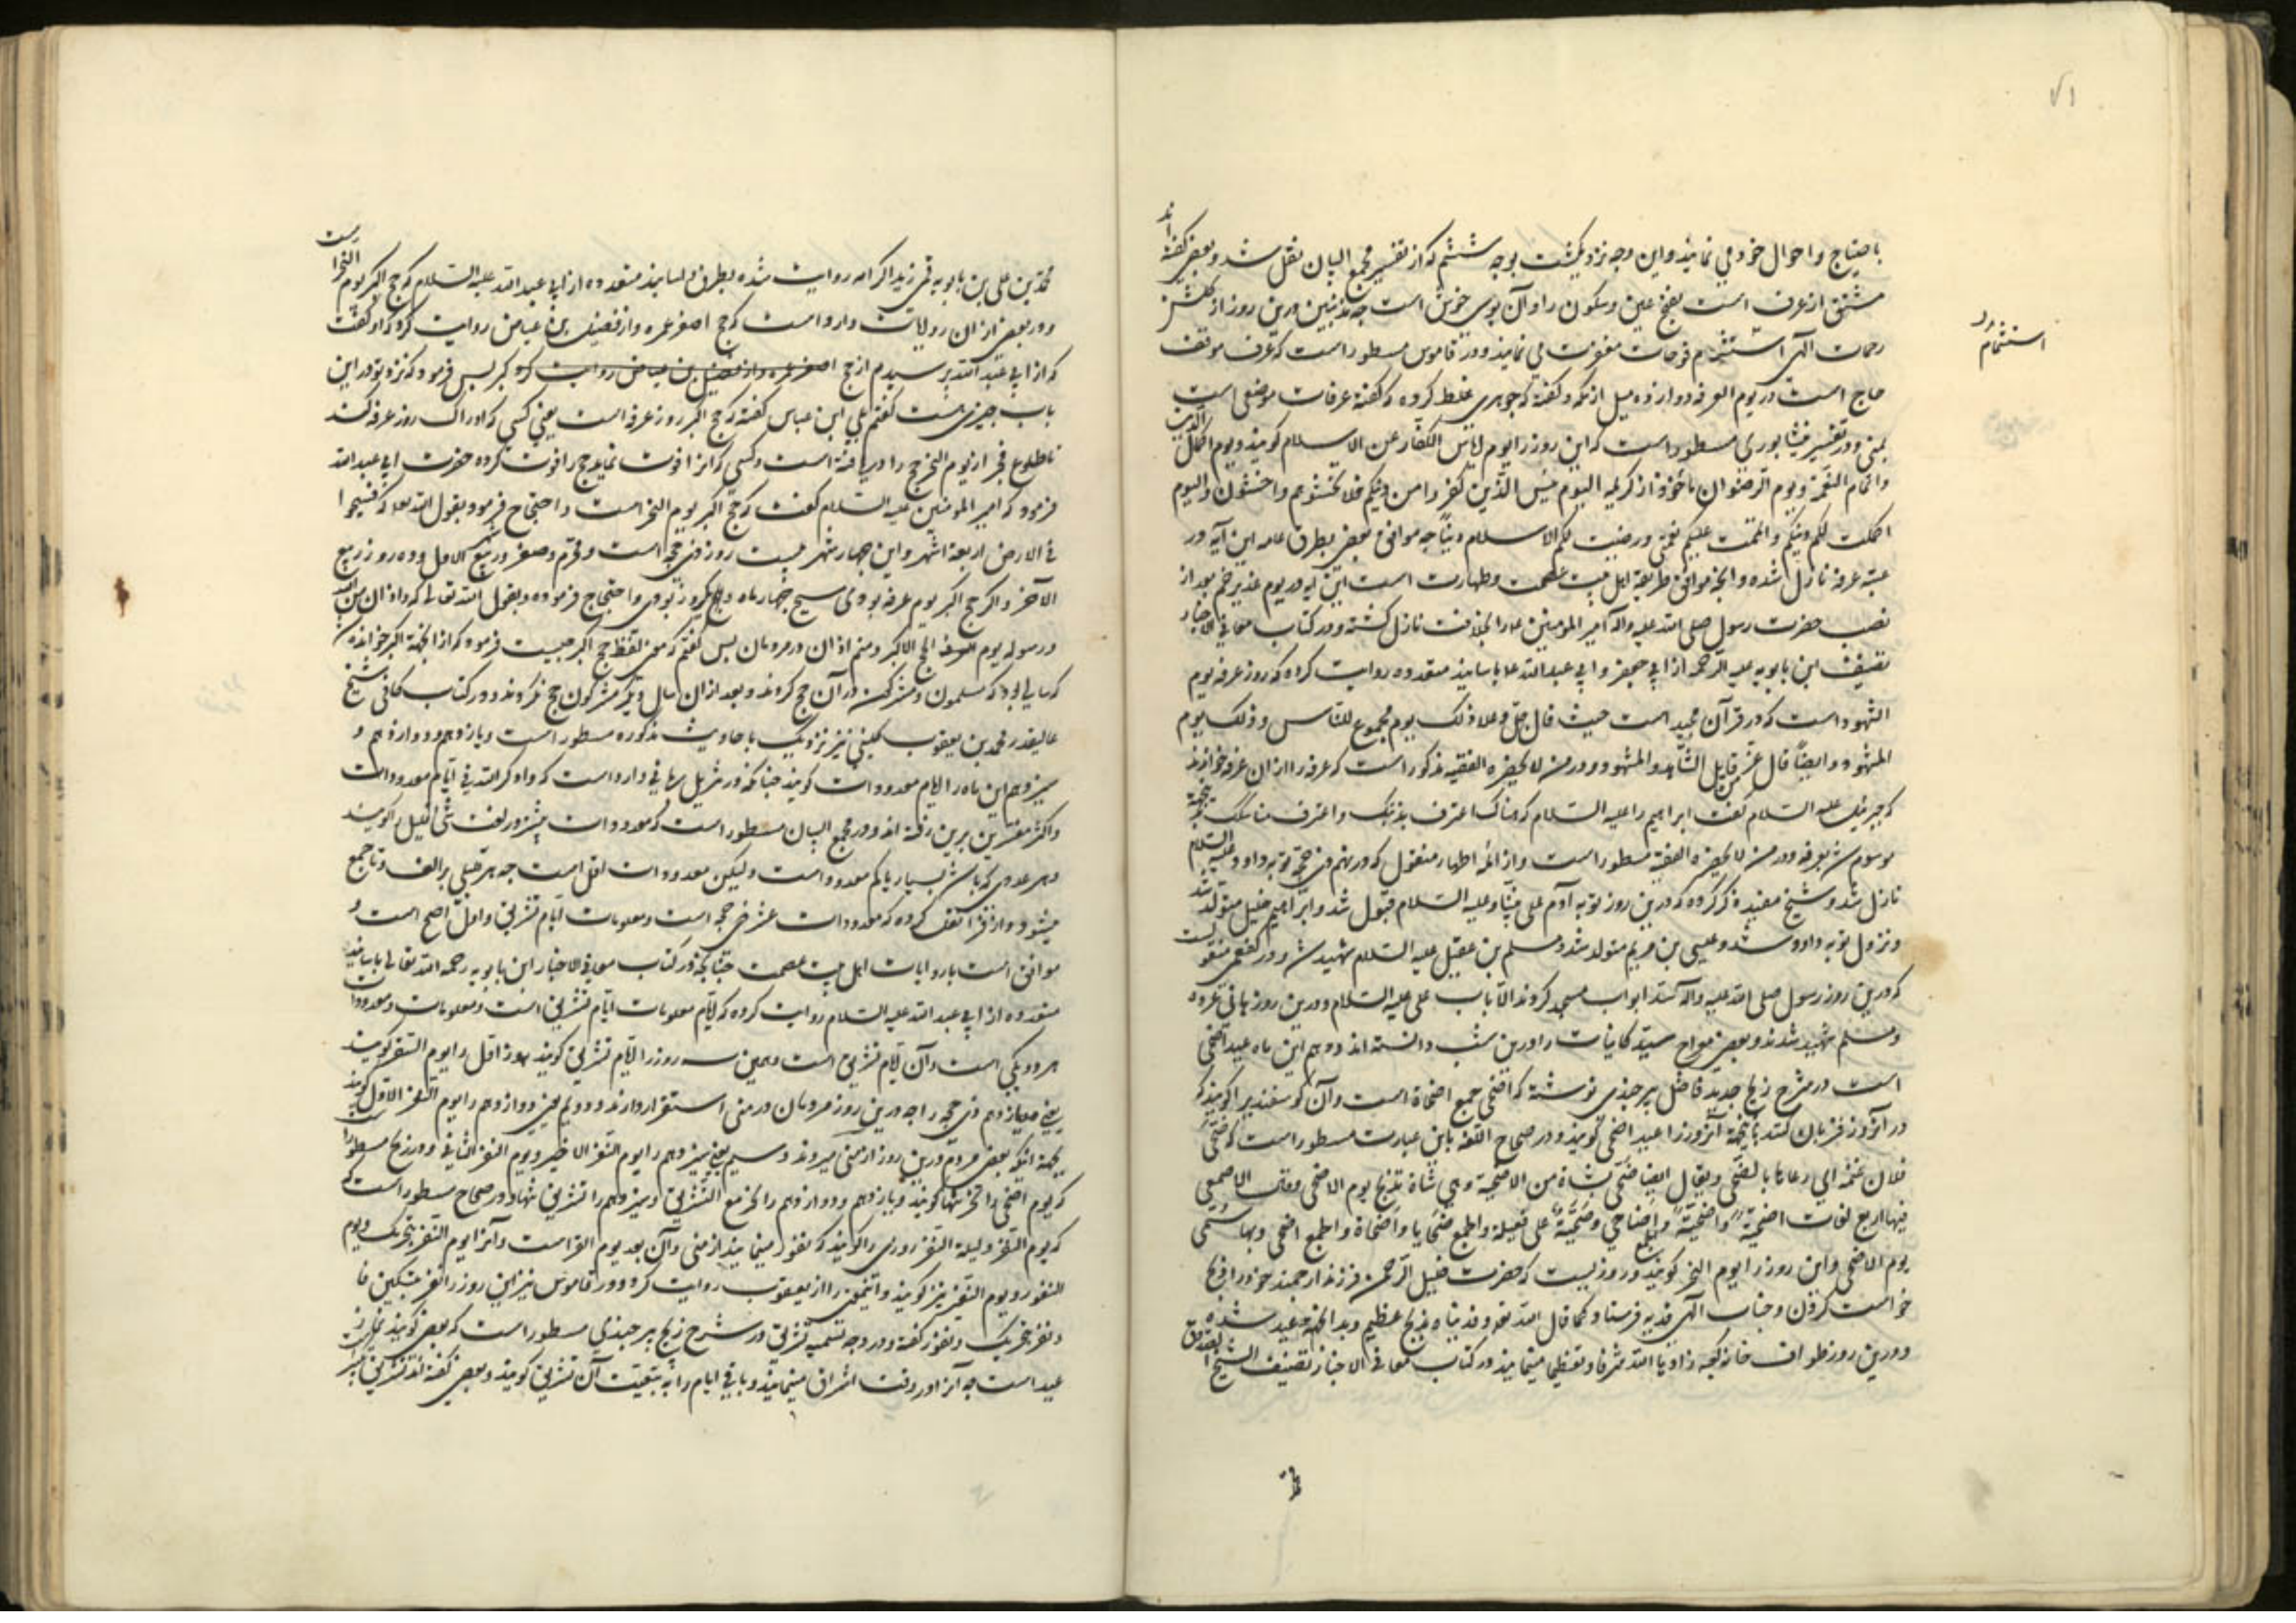 ۷۱
باحتیاج و احوال خود می نمایند و این وجه نزدیکست بوجه ششم که از تفسیر مجمع البیان نقل شد و بعضی گفته اند
مشتق از عرف است بفتح عین و سکون را و آن بوی خوش است چه مذنبین درین روز از گلشن
رحمات الهی استشمام فوحات مغفرت می نمایند و در قاموس مسطور است که عرفه موقف
استشمام
حاج است در یوم العرفه دوازده میل از مکه و گفته که جوهری غلط کرده که گفته عرفات موضعی است
بمنی و در تفسیر نیشابوری مسطور است که این روز را یوم ایاس الکفار عن الاسلام گویند و یوم اکمال الدین
و اتمام النعمة و یوم الرضوان ماخوذ از کریمه الیوم یئس الذین کفروا من دینکم فلا تخشوهم و اخشون الیوم
اکملت لکم دینکم و اتممت علیکم نعمتی و رضیت لکم الاسلام دینا چه موافق بعضی طرق عامه این آیه در
عشیه عرفه نازل شده و آنچه موافق طریقه اهل بیت عصمت و طهارت است این آیه در یوم غدیر خم بعد از
نصب حضرت رسول صلی الله علیه و آله امیر المومنین را بخلافت نازل گشته و در کتاب معانی الاخبار
تصنیف ابن بابویه علیه الرحمه از ابی جعفر و ابی عبدالله باسانید متعدده روایت کرده که روز عرفه یوم
الشهود است که در قرآن مجید است حیث قال جل و علا ذلک یوم مجموع للناس و ذلک یوم
المشهود و ایضا قال عز قایل الشاهد و المشهود و در من لا یحضره الفقیه مذکور است که عرفه را از ان عرفه خوانند
که جبرئیل علیه السلام گفت ابراهیم را علیه السلام که هناک اعترف بذنبک و اعرف مناسکک
موسوم شد بعرفه و در من لا یحضره الفقیه مسطور است و از ائمه اطهار منقول که در نهم ذی حجه توبه داود علیه السلام
نازل شد و شیخ مفید ذکر کرده که درین روز توبه آدم علی نبینا و علیه السلام قبول شد و ابراهیم خلیل متولد شد
و نزول توبه داود شد و عیسی بن مریم متولد شد و مسلم بن عقیل علیه السلام شهید شد و در کفعمی منقولست
که درین روز رسول صلی الله علیه و آله سد ابواب مسجد کردند الا باب علی علیه السلام و درین روز هانی عروه
و مسلم شهید شدند و بعضی معراج سید کاینات را درین شب دانسته اند دهم این ماه عید اضحی
است در شرح زیج جدید فاضل بیرجندی نوشته که اضحی جمع اضحاة است و آن گوسفندیرا گویند که
در آنروز قربان کنند باینجهة آنروز را عید اضحی گویند و در صحاح اللغه باین عبارت مسطور است که ضحی
فلان غنمه ای رعاها بالضحی و یقال ایضا ضحی بشاة من الاضحیة و هی شاة تذبح یوم الاضحی و قال الاصمعی
فیها اربع لغات اضحیة و اضحیة و الجمع اضاحی و ضحیة علی فعیلة و الجمع ضحایا و اضحاة و الجمع اضحی و بها سمی
یوم الاضحی و این روز را یوم النحر گویند و روزیست که حضرت خلیل الرحمن فرزند ارجمند خود را ذبح
خواست کردن و جناب الهی فدیه فرستاد کما قال الله تعالی و فدیناه بذبح عظیم و بدانجهة عید شده
و درین روز طواف خانه کعبه زادها الله شرفا و تعظیما مینمایند در کتاب معانی الاخبار تصنیف الشیخ الصدوق
محمد بن علی بن بابویه قمی زید اکرامه روایت شده بطرق و اسانید متعدده از ابی عبدالله علیه السلام که حج اکبر یوم النحر است
و در بعضی از ان روایات وارد است که حج اصغر عمره و از فضیل بن عیاض روایت کرده که او گفت
که از ابی عبدالله پرسیدم از حج اصغر عمره و از فضیل بن عیاض روایت کرده اکبر پس فرمود که نزد تو در این
باب چیزی هست گفتم بلی ابن عباس گفته که حج اکبر روز عرفه است یعنی کسی که ادراک روز عرفه کند
تا طلوع فجر از یوم النحر حج را دریافته است و کسی که انرا فوت نماید حج را فوت کرده حضرت ابی عبدالله
فرمود که امیر المومنین علیه السلام گفت که حج اکبر یوم النحر است و احتجاج فرمود بقول الله تعالی که فسیحوا
فی الارض اربعة اشهر و این چهار شهر بیست روز ذی حجه است و محرم و صفر و ربیع الاول و ده روز ربیع
الآخر و اگر حج اکبر یوم عرفه بودی سیح چهار ماه و یکروز بودی و احتجاج فرموده بقول الله تعالی که و اذان من الله
و رسوله یوم الحج الاکبر و منم اذان در مردمان پس گفتم که معنی لفظ حج اکبر چیست فرمود که از انجهة اکبر خوانده شد
که سالی بود که مسلمون و مشرکین در آن حج کردند و بعد از ان سال دیگر مشرکون حج نکردند و در کتاب کافی شیخ
عالیقدر محمد بن یعقوب کلینی نیز نزدیک باحادیث مذکوره مسطور است و یازدهم و دوازدهم و
سیزدهم این ماه را ایام معدودات گویند چنانکه در تنزیل سامی وارد است که و اذکروا الله فی ایام معدودات
و اکثر مفسرین برین رفته اند و در مجمع البیان مسطور است که معدودات بیشتر در لغت شی قلیل را گویند
و هر عددی که باشد بسیار یا کم معدود است ولیکن معدودات اقل است چه هر قلیلی بر الف و تا جمع
میشود و از فرا نقل کرده که معدودات عشر ذی حجه است و معلومات ایام تشریق و اول اصح است و
موافق است با روایات اهل بیت عصمت چنانچه در کتاب معانی الاخبار ابن بابویه رحمه الله تعالی باسانید
متعدده از ابی عبدالله علیه السلام روایت کرده که ایام معلومات ایام تشریق است و معلومات و معدودات
هر دو یکی است و آن ایام تشریق است و همین سه روز را ایام تشریق گویند روز اول را یوم القر گویند
یعنی یازدهم ذی حجه را چه درین روز مردمان در منی استقرار دارند و دویم یعنی دوازدهم را یوم النفر الاول گویند
بجهة آنکه بعضی مردم درین روز از منی میروند و سیم یعنی سیزدهم را یوم النفر الاخیر و یوم النفر الثانی و در زیج مسطور است
که یوم اضحی را نحر تنها گویند و یازدهم و دوازدهم را نحر مع التشریق و سیزدهم را تشریق تنها و در صحاح مسطور است که
که یوم النفر و لیلة النفر روزی را گویند که نفور مینمایند از منی و آن بعد یوم القر است و آنرا یوم النفر بتحریک و یوم
النفور و یوم النفیر نیز گویند و اینمعنی را از یعقوب روایت کرده و در قاموس نیز این روز را نفر بتسکین فا
و نفر بتحریک و نفور گفته و در وجه تسمیه تشریق در شرح زیج بیرجندی مسطور است که بعضی گویند نماز
عید است چه آنرا در وقت اشراق مینمایند و باقی ایام را به تبعیت آن تشریق گویند و بعضی گفته اند تشریق